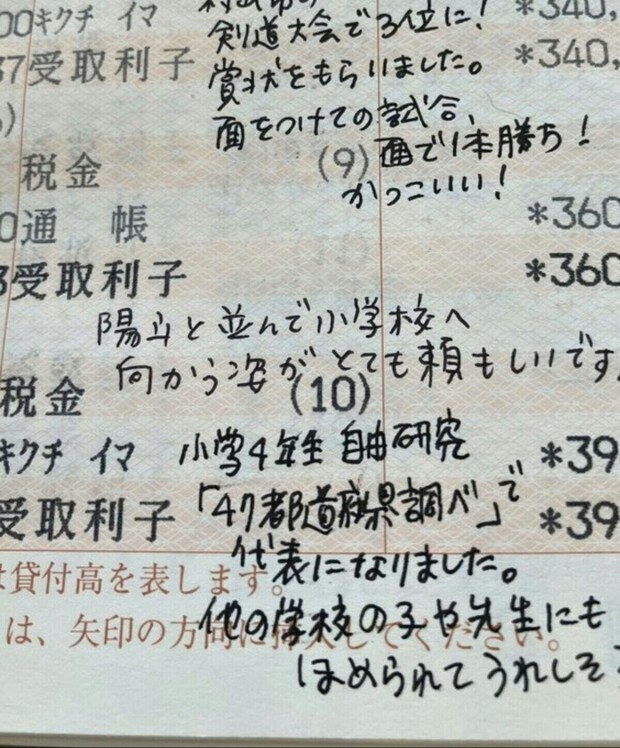 00キクチ イマ
*340,
剣道大会で3位に!
*340,
37受取利子
賞状をもらいました。
面をつけての試合、
税金
(9)
面で1本勝ち!
かっこいい!
0通 帳
*360
3受取利子
*360
陽斗と並んで小学校へ
向かう姿がとても頼もしいです
税金
(10)
キクチ イマ
小学4年生 自由研究
*39
受取利子
「47都道府県調べ」で
*39
代表になりました。
は貸付高を表します。
他の学校の子や先生にも
は、矢印の方向に挿入してください。
ほめられてうれしそ